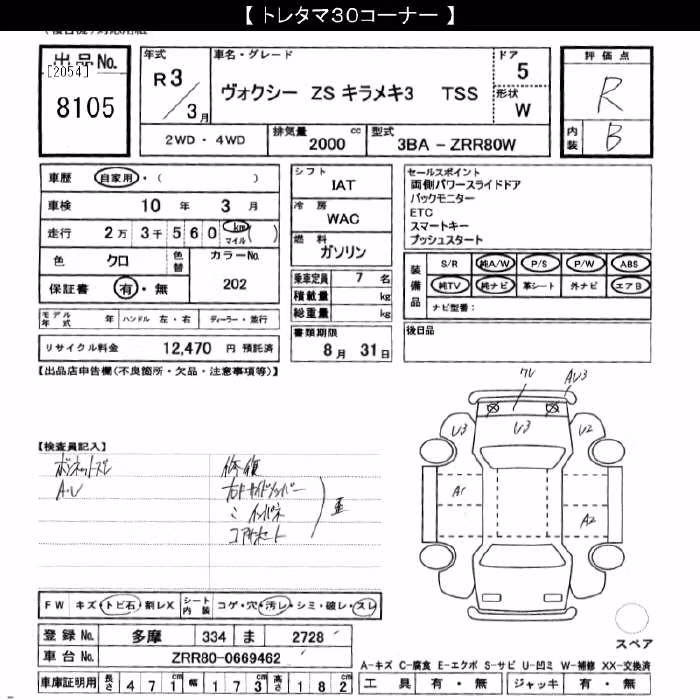 【 トレタマ30コーナー 】
出品No.
[2054]
8105
年式
R3
3月
車名・グレード
ヴォクシー ZS キラメキ3 TSS
ドア
5
形状
W
評価点
R
内装
B
2WD・4WD
排気量 2000 cc
型式 3BA - ZRR80W
車歴 自家用・( )
車検 10 年 3 月
走行 2万 3千 5 6 0 km マイル ( )
色 クロ 色替
カラーNo. 202
保証書 有・無
シフト
IAT
冷房
WAC
燃料
ガソリン
乗車定員 7 名
積載量 kg
総重量 kg
書類期限
8 月 31 日
セールスポイント
両側パワースライドドア
バックモニター
ETC
スマートキー
プッシュスタート
装備品
S/R 純A/W P/S P/W ABS
純TV 純ナビ 革シート 外ナビ エアB
ナビ型番:
後日品
モデル年式 年 ハンドル 左・右 ディーラー・並行
リサイクル料金 12,470 円 預託済
【出品店申告欄(不良箇所・欠品・注意事項等)】
【検査員記入】
ボンネットズレ
A・U
修復
コアサポート
AU3
U3
U3
U2
A1
A2
FW キズ・トビ石・割レX シート内装 コゲ・穴・汚レ・シミ・破レ・スレ
スペア
登録No. 多摩 334 ま 2728
車台No. ZRR80-0669462
A-キズ C-腐食 E-エクボ S-サビ U-凹ミ W-補修 XX-交換済
車庫証明用 長さ 471 cm 幅 173 cm 高さ 182 cm
工具 有・無 ジャッキ 有・無